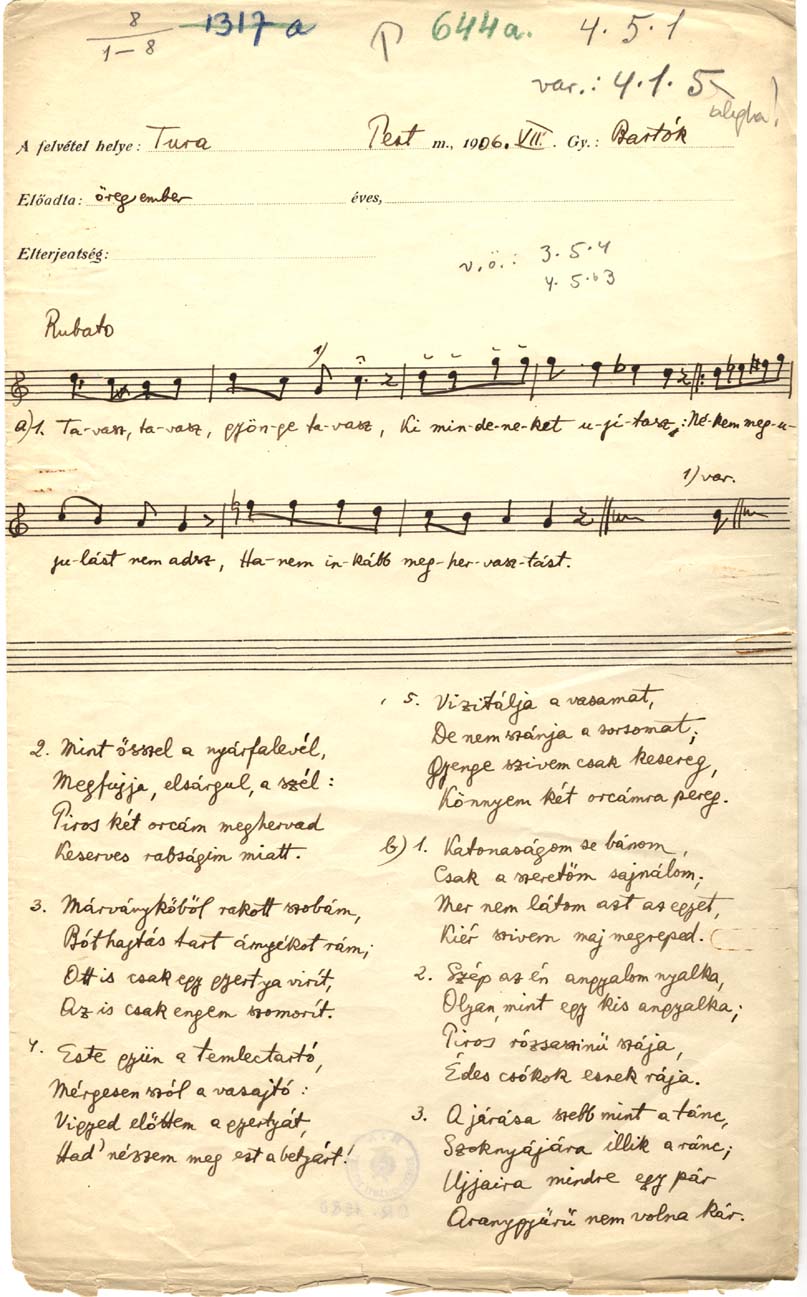 8
1-8
1317a
644a.
4.5.1
var.: 4.1.5
aligha!
A felvétel helye: Tura Pest m., 1906. VII. Gy.: Bartók
Előadta: öreg ember éves,
Elterjeatség:
v.ö.: 3.5.4
4.5.b3
Rubato
1)
a) 1. Ta-vasz, ta-vasz, gyön-ge ta-vasz, Ki min-de-ne-ket u-ji-tasz,: Né-kem meg-u-
1) var.
ju-lást nem adsz, Ha-nem in-kább meg-her-vasz-tást.
2. Mint ősszel a nyárfalevél,
Megfujja, elsárgul, a szél:
Piros két orcám meghervad
Keserves rabságim miatt.
3. Márványkőből rakott szobám,
Bóthajtás tart árnyékot rám;
Ott is csak egy gyertya virít,
Az is csak engem szomorít.
4. Este gyün a temlectartó,
Mérgesen szól a vasajtó:
Vigyed előttem a gyertyát,
Had' nézzem meg ezt a betyárt!
5. Vizitálja a vasamat,
De nem szánja a sorsomat;
Gyenge szivem csak kesereg,
Könnyem két orcámra pereg.
b) 1. Katonaságom se bánom,
Csak a szeretőm sajnálom;
Mer nem látom azt az egyet,
Kiér szivem maj megreped.
2. Szép az én angyalom nyalka,
Olyan, mint egy kis angyalka;
Piros rózsaszinü szája,
Édes csókok esnek rája.
3. A járása szebb mint a tánc,
Szoknyájára illik a ránc;
Ujjaira mindre egy pár
Aranygyürü nem volna kár.